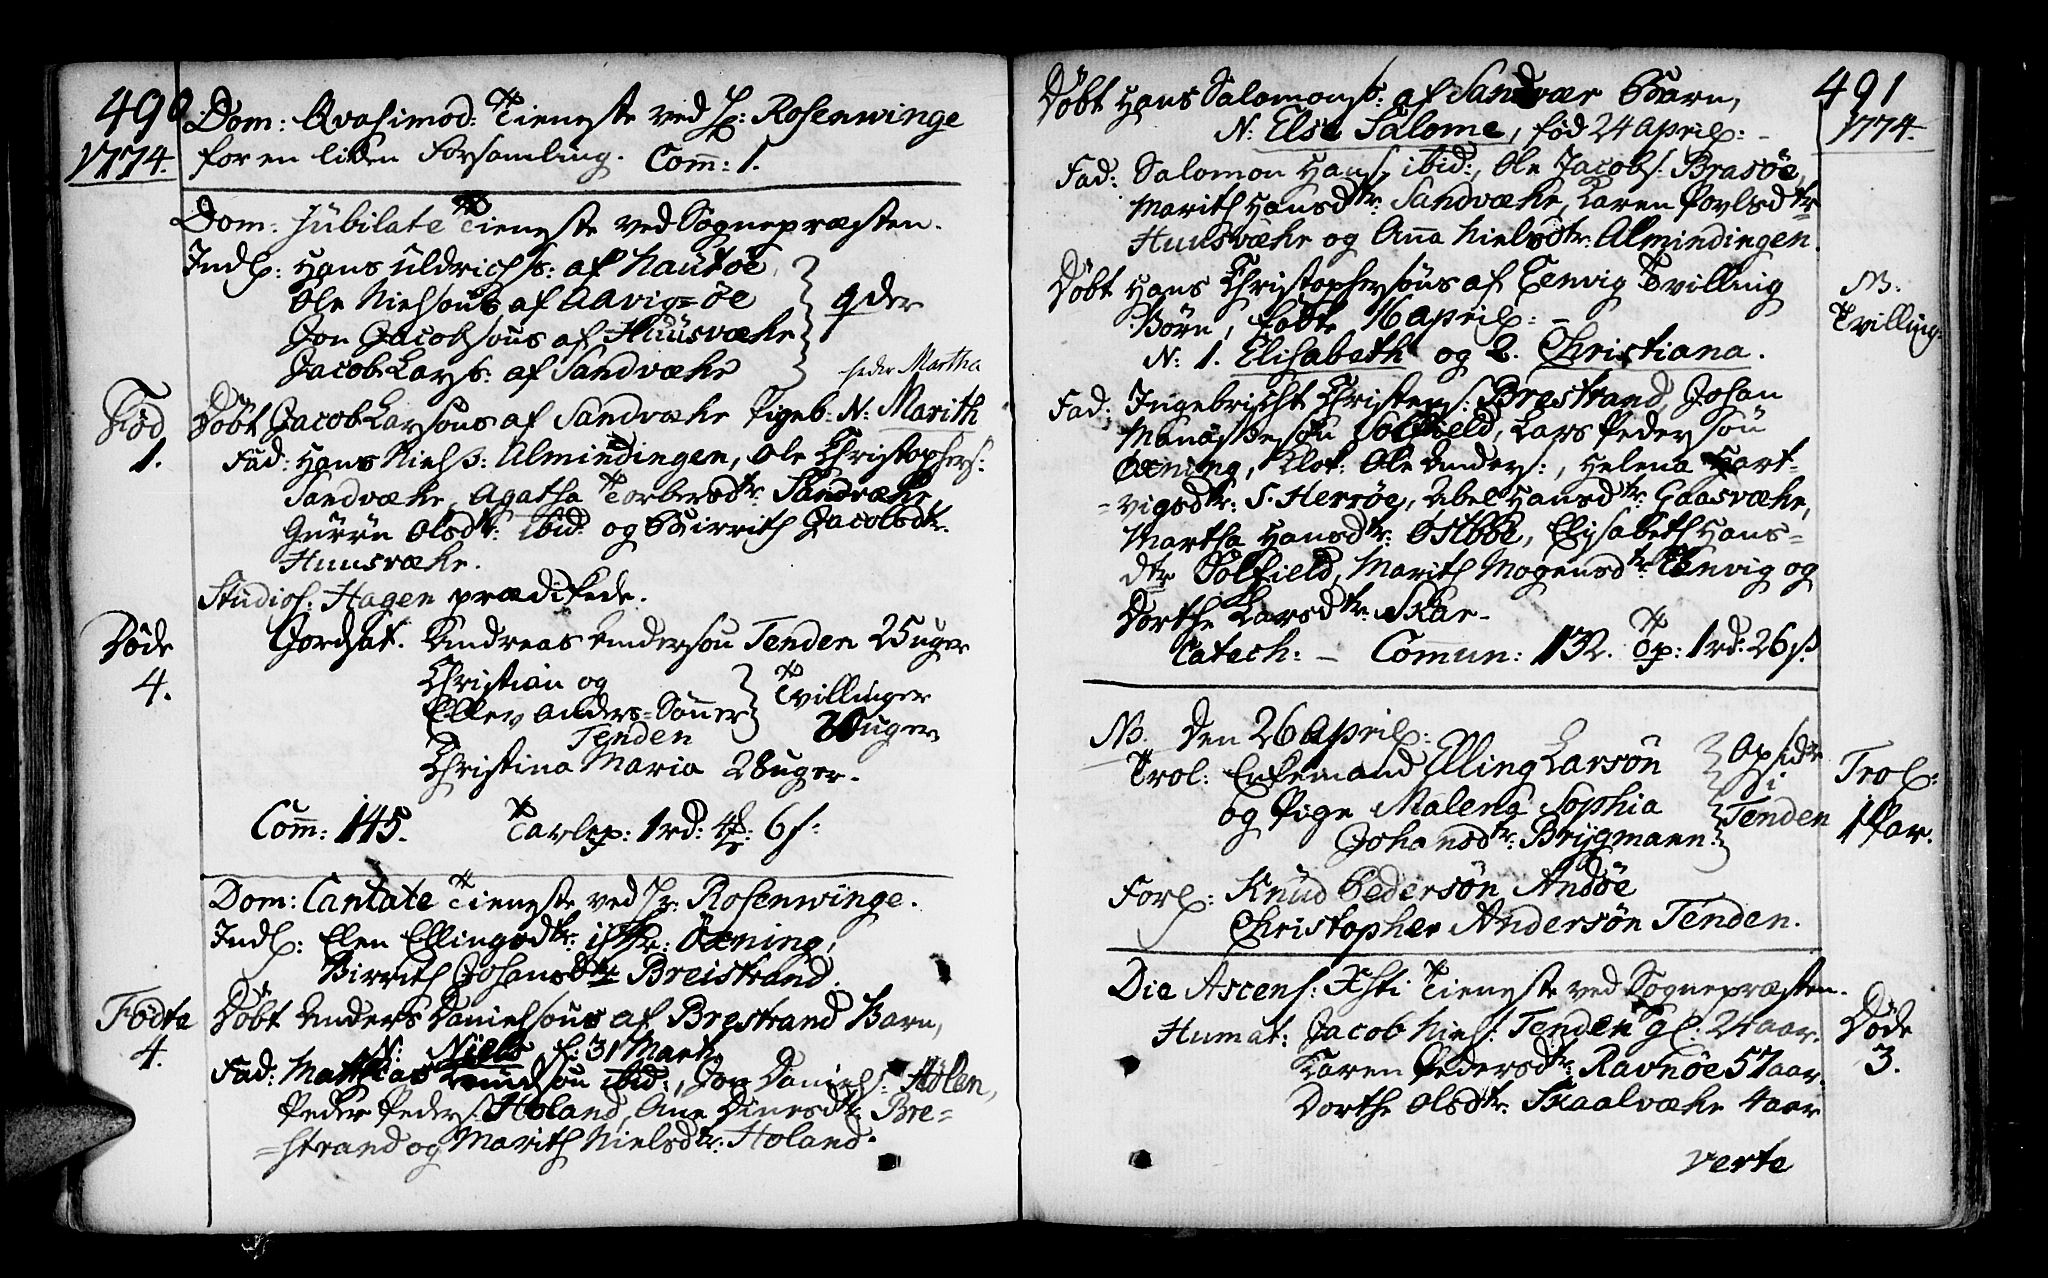 490
1774.
Dom: Qvasimod: Tieneste ved Hr: Rosenwinge
for en liden Forsamling. Com̅: 1.
Dom: Jubilate Tieneste ved Sognepræsten.
Indl: Hans Uldrichs: af Hautøe
Ole Nielsøns af Aavig=øe
Jon Jacobsøns af Huusvæke
Jacob Lars: af Sandvæke
qder
heder Martha
Fød
1.
Døbt Jacob Larsøns af Sandvæke Pigeb: N: Marith
Fad: Hans Niels: Almindingen, Ole Christophers:
Sandvæke, Agatha Torbersdtr: Sandvæke,
Guru Olsdtr: ibid: og Birrith Jacobsdtr.
Huusvæke.
Studios: Hagen prædikede.
Døde
4.
Jordsat. Andreas Andersøn Tenden 25 uger
Christian og
Ellev Anders=Sønner
Tenden
Tvillinger
20 uger.
Christina Maria 28 uger.
Com̅: 145. Tavlep: 1 rd: 4 : 6 s:
Dom: Cantate Tieneste ved Hr: Rosenwinge.
Indl: Elen Ellingsdtr: Øxning,
Birrith Johansdtr Breistrand.
Fødte
4.
Døbt Anders Danielsøns af Brestrand Barn,
N: Niels f: 31 Mart.
Fad: Mathias Knudsøn ibid:, Jon Daniels: Holen,
Peder Peders: Holand, Ane Dinesdtr Bre=
=strand og Marith Nielsdtr: Holand.
491
1774.
Døbt Hans Salomons: af Sandvær Barn,
N: Else Salome, fød 24 April:
Fad: Salomon Hans: ibid:, Ole Jacobs: Brasøe,
Marith Hansdtr: Sandvæke, Karen Povlsdtr
Huusvæke og Anna Nielsdtr: Almindingen.
Døbt Hans Christophersøns af Tenvig Tvilling
Børn, fødte 16 April:
N: 1. Elisabeth og 2. Christiana.
NB.
Tvilling:
Fad: Ingebricht Christens: Brestrand Johan
Manassesøn Solfield, Lars Pedersøn
Øxning, Klok: Ole Anders:, Helena Hart=
=vigsdtr: S. Herrøe, Abel Hansdtr: Gaasvæke,
Martha Hansdtr: Østbøe, Elisabeth Hans=
dtr Solfield, Marith Mogensdtr Tenvig og
Dorthe Larsdtr: Skar.
Catech: — Com̅un: 132. Tp: 1 rd: 26 s.
NB. Den 26 April:
Trol: Enkemand Elling Larsøn
og Pige Maleng Sophia
Johansdtr: Brygmann:
Opsidr
i
Tenden
Trol:
1 Par.
Forl: Knud Pedersøn Andøe
Christopher Andersøn Tenden.
Dia Ascens: Xsti Tieneste ved Sognepræsten.
Humat: Jacob Niels: Tenden gl: 24 aar.
Karen Pedersdtr: Ravnøe 57 aar.
Dorthe Olsdtr: Skaalvæke 4 aar
Døde
3.
verte